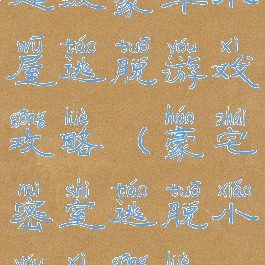 wū táo tuō yóu xì
屋逃脱游戏
gōng lüè háo zhái
攻略（豪宅
mì shì táo tuō xiǎo
密室逃脱小
yóu xì gōng lüè